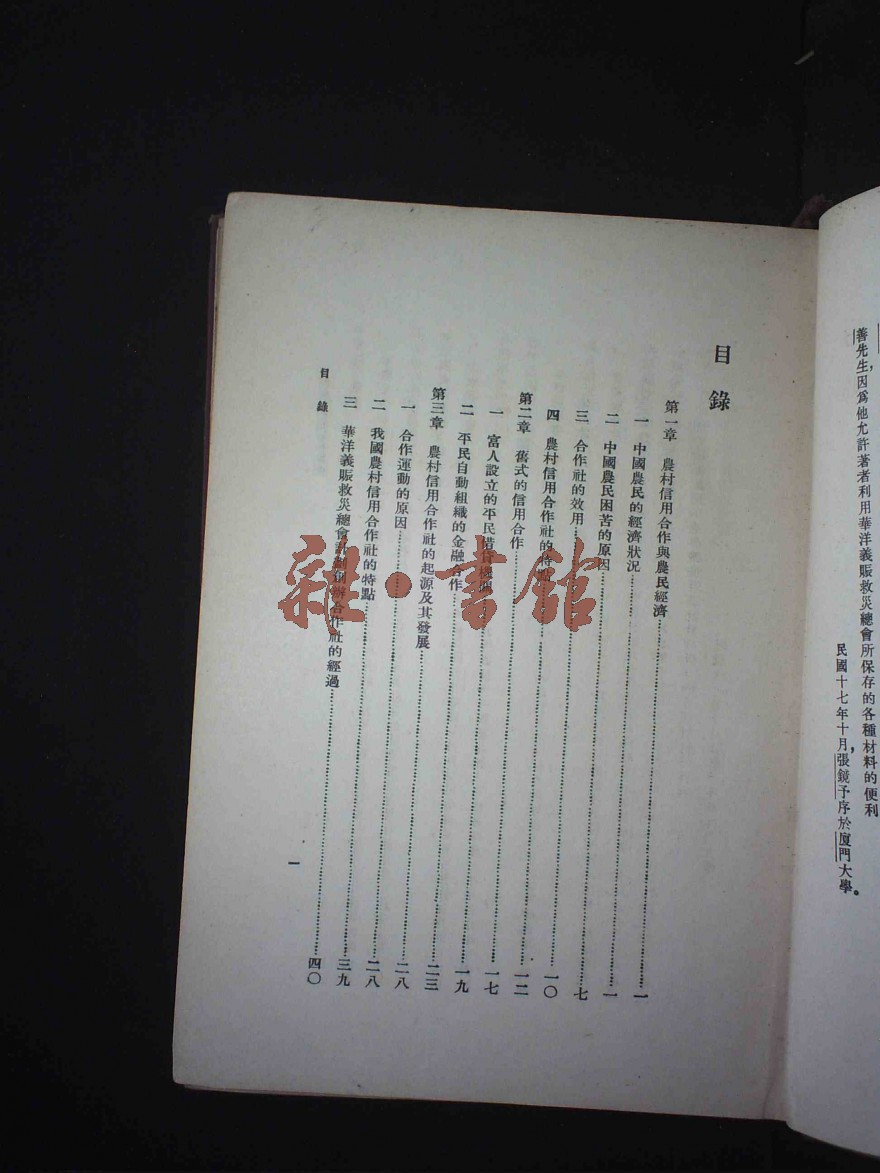 善先生,因為他允許著者利用華洋義賑救災總會所保存的各種材料的便利
民國十七年十月,張鏡予序於廈門大學。
目錄
第一章 農村信用合作與農民經濟……一
一 中國農民的經濟狀況……一
二 中國農民困苦的原因……七
三 合作社的效用……一〇
四 農村信用合作社的特點……一二
第二章 舊式的信用合作……一七
一 富人設立的平民借貸機關……一九
二 平民自動組織的金融合作……二三
第三章 農村信用合作社的起源及其發展……二八
一 合作運動的原因……二八
二 我國農村信用合作社的特點……三九
三 華洋義賑救災總會計劃創辦合作社的經過……四〇
目錄
一
雜·書館